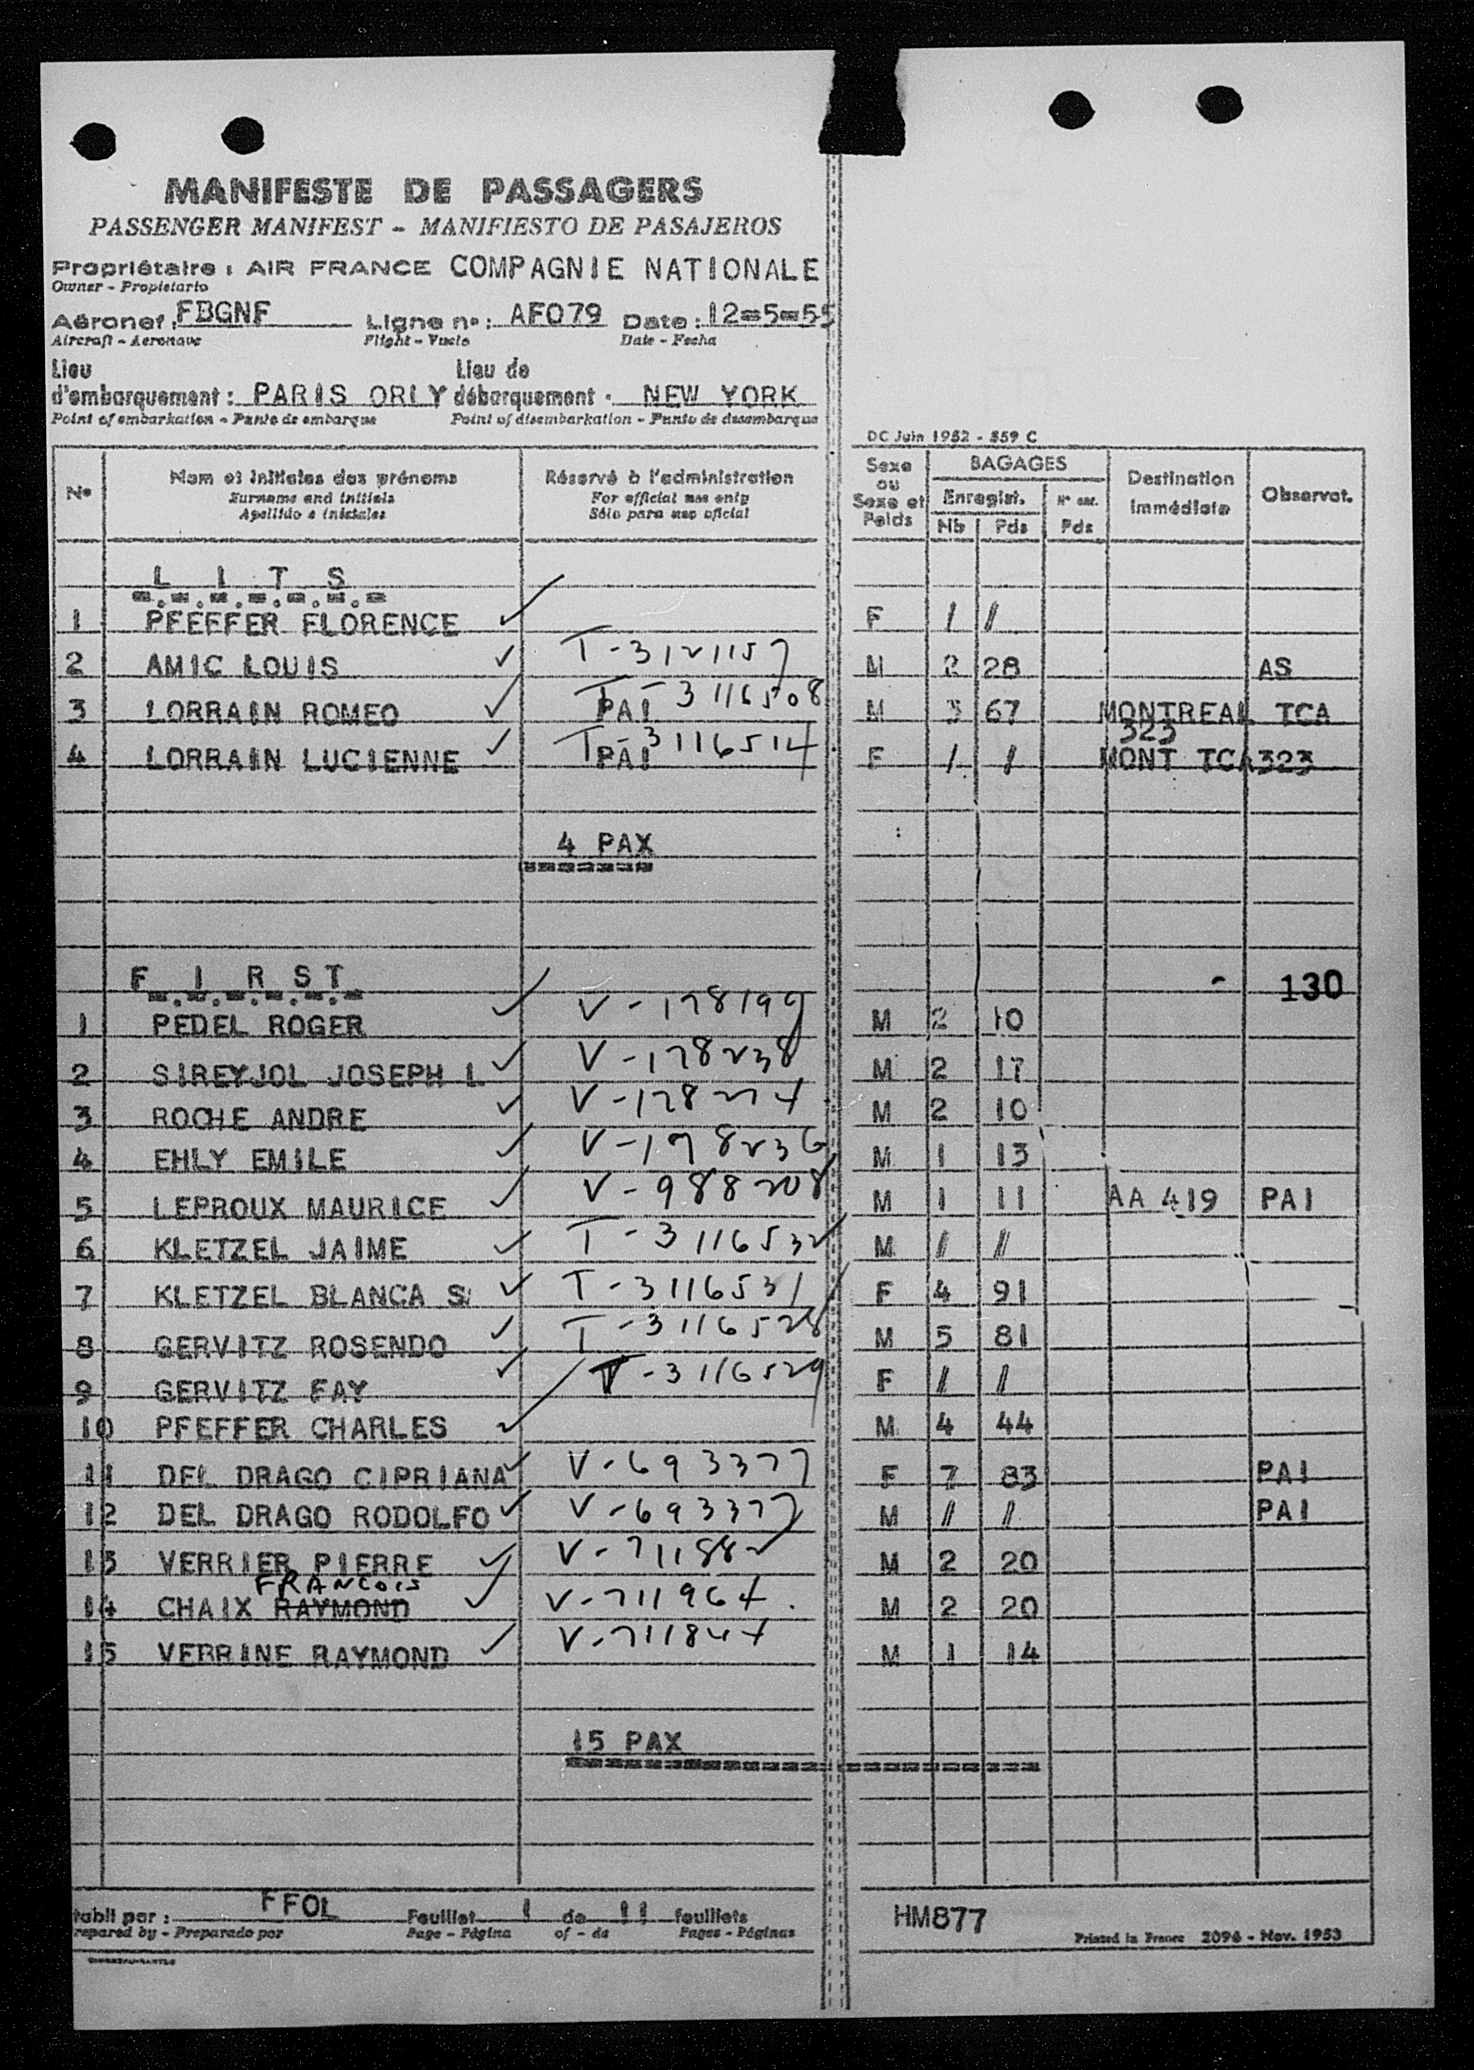 MANIFESTE DE PASSAGERS
PASSENGER MANIFEST - MANIFIESTO DE PASAJEROS
Propriétaire : AIR FRANCE COMPAGNIE NATIONALE
Owner - Propietario
Aéronef : FBGNF Ligne n° : AF079 Date : 12=5=55
Aircraft - Aeronave Flight - Vuelo Date - Fecha
Lieu Lieu de
d'embarquement : PARIS ORLY débarquement : NEW YORK
Point of embarkation - Punto de embarque Point of disembarkation - Punto de desembarque
DC Juin 1952 - 859 C
N° Nom et initiales des prénoms Réservé à l'administration Sexe ou Sexe et Poids BAGAGES Destination immédiate Observat.
Surname and initials For official use only Enregist. N° enr.
Apellido e iniciales Sólo para uso oficial Nb Pds Pds
L I T S
1 PFEFFER FLORENCE F / //
2 AMIC LOUIS T-3121157 M 2 28 AS
3 LORRAIN ROMEO PAI T-3116508 M 3 67 MONTREAL TCA
323
4 LORRAIN LUCIENNE PAI T-3116514 F / / MONT TCA323
4 PAX
F I R S T - 130
1 PEDEL ROGER V-178199 M 2 10
2 SIREYJOL JOSEPH L V-178238 M 2 17
3 ROCHE ANDRE V-178274 M 2 10
4 EHLY EMILE V-178236 M 1 13
5 LEPROUX MAURICE V-988208 M 1 11 AA 419 PAI
6 KLETZEL JAIME T-3116532 M // //
7 KLETZEL BLANCA S T-3116531 F 4 91
8 GERVITZ ROSENDO T-3116528 M 5 81
9 GERVITZ FAY T-3116529 F // //
10 PFEFFER CHARLES M 4 44
11 DEL DRAGO CIPRIANA V-693377 F 7 83 PAI
12 DEL DRAGO RODOLFO V-693377 M // // PAI
13 VERRIER PIERRE V-711882 M 2 20
FRANCOIS
14 CHAIX RAYMOND V-711964 M 2 20
15 VERRINE RAYMOND V-711844 M 1 14
15 PAX
tabli par : FFOL Feuillet 1 de 11 feuillets HM877
repared by - Preparado por Page - Página of - de Pages - Páginas Printed in France 2096 - Nov. 1953